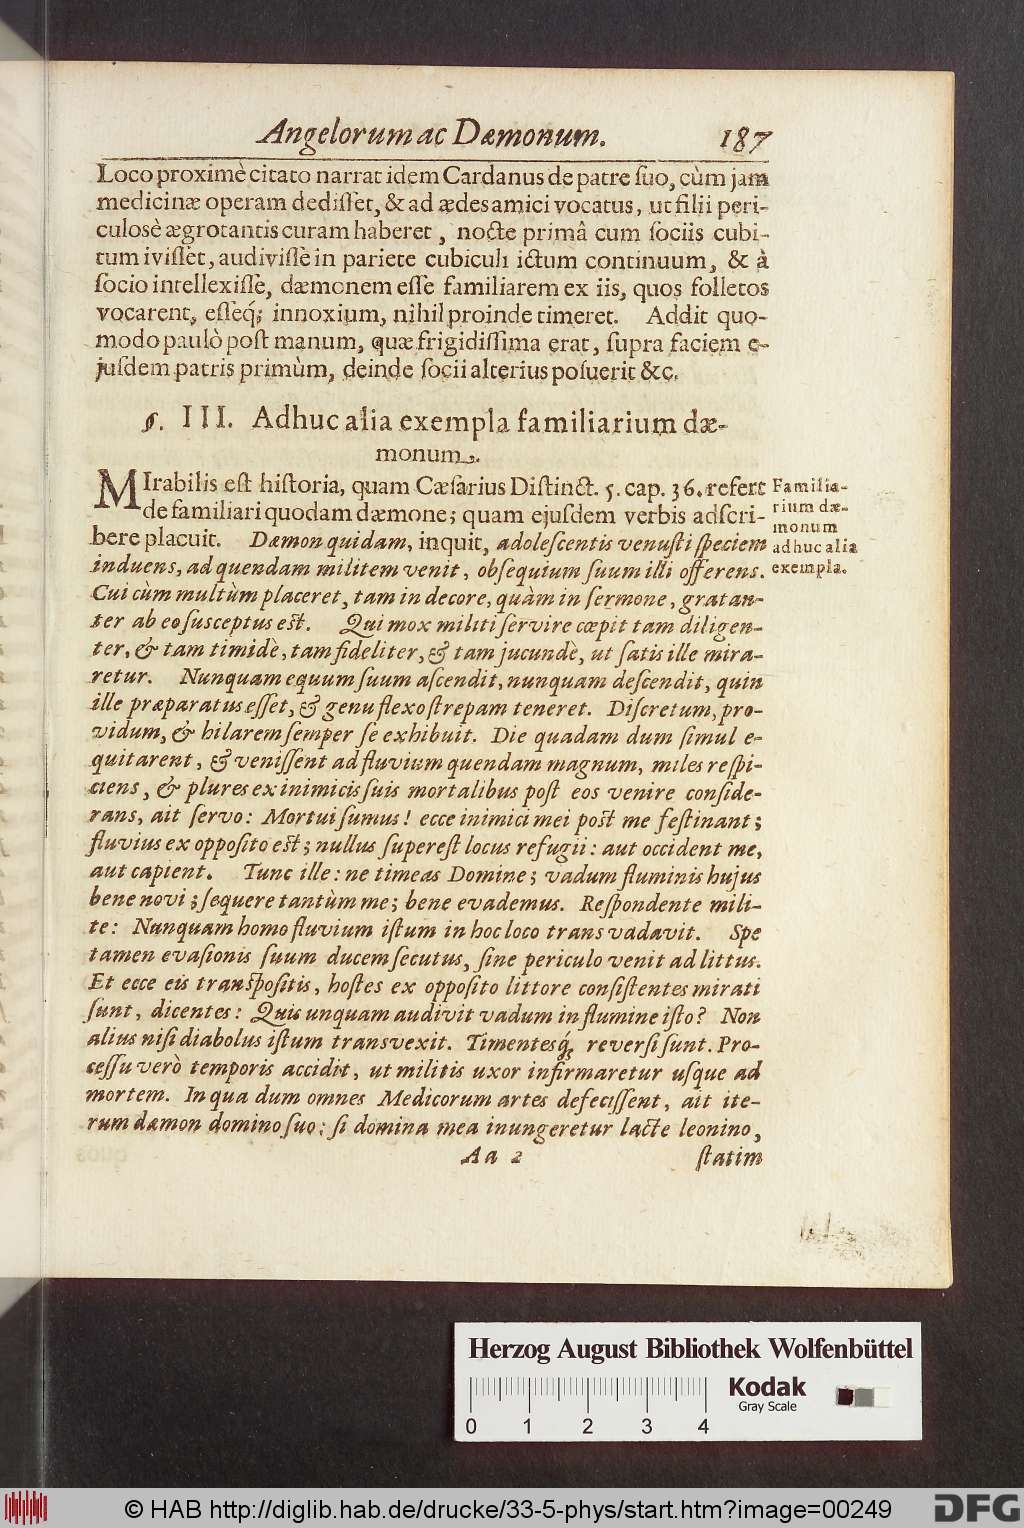 Angelorum ac Dæmonum. 187
Loco proximè citato narrat idem Cardanus de patre ſuo, cùm jam
medicinæ operam dediſſet, & ad ædes amici vocatus, ut filii peri-
culosè ægrotantis curam haberet, nocte primâ cum ſociis cubi-
tum iviſſet, audiviſſe in pariete cubiculi ictum continuum, & à
ſocio intellexiſſe, dæmonem eſſe familiarem ex iis, quos folletos
vocarent, eſſeq́; innoxium, nihil proinde timeret. Addit quo-
modo paulò poſt manum, quæ frigidiſſima erat, ſupra faciem e-
juſdem patris primùm, deinde ſocii alterius poſuerit &c.
§. III. Adhuc alia exempla familiarium dæ-
monum.
MIrabilis eſt hiſtoria, quam Cæſarius Diſtinct. 5. cap. 36. refert
de familiari quodam dæmone; quam ejuſdem verbis adſcri-
bere placuit. Dæmon quidam, inquit, adoleſcentis venuſti ſpeciem
induens, ad quendam militem venit, obſequium ſuum illi offerens.
Cui cùm multùm placeret, tam in decore, quàm in ſermone, gratan-
ter ab eo ſusceptus eſt. Qui mox militi ſervire cœpit tam diligen-
ter, & tam timidè, tam fideliter, & tam jucundè, ut ſatis ille mira-
retur. Nunquam equum ſuum aſcendit, nunquam deſcendit, quin
ille præparatus eſſet, & genu flexo ſtrepam teneret. Diſcretum, pro-
vidum, & hilarem ſemper ſe exhibuit. Die quadam dum ſimul e-
quitarent, & veniſſent ad fluvium quendam magnum, miles reſpi-
ciens, & plures ex inimicis ſuis mortalibus poſt eos venire conſide-
rans, ait ſervo: Mortui ſumus! ecce inimici mei poſt me feſtinant;
fluvius ex oppoſito eſt; nullus ſupereſt locus refugii: aut occident me,
aut capient. Tunc ille: ne timeas Domine; vadum fluminis hujus
bene novi; ſequere tantùm me; bene evademus. Reſpondente mili-
te: Nunquam homo fluvium iſtum in hoc loco trans vadavit. Spe
tamen evaſionis ſuum ducem ſecutus, ſine periculo venit ad littus.
Et ecce eis tranſpoſitis, hoſtes ex oppoſito littore conſiſtentes mirati
ſunt, dicentes: Quis unquam audivit vadum in flumine iſto? Non
alius niſi diabolus iſtum transvexit. Timentesq́; reverſi ſunt. Pro-
ceſſu verò temporis accidit, ut militis uxor infirmaretur uſque ad
mortem. In qua dum omnes Medicorum artes defeciſſent, ait ite-
rum dæmon domino ſuo: ſi domina mea inungeretur lacte leonino,
Aa 2 ſtatim
Familia-
rium dæ-
monum
adhuc alia
exempla.
Herzog August Bibliothek Wolfenbüttel
Kodak
Gray Scale
0 1 2 3 4
© HAB http://diglib.hab.de/drucke/33-5-phys/start.htm?image=00249
DFG